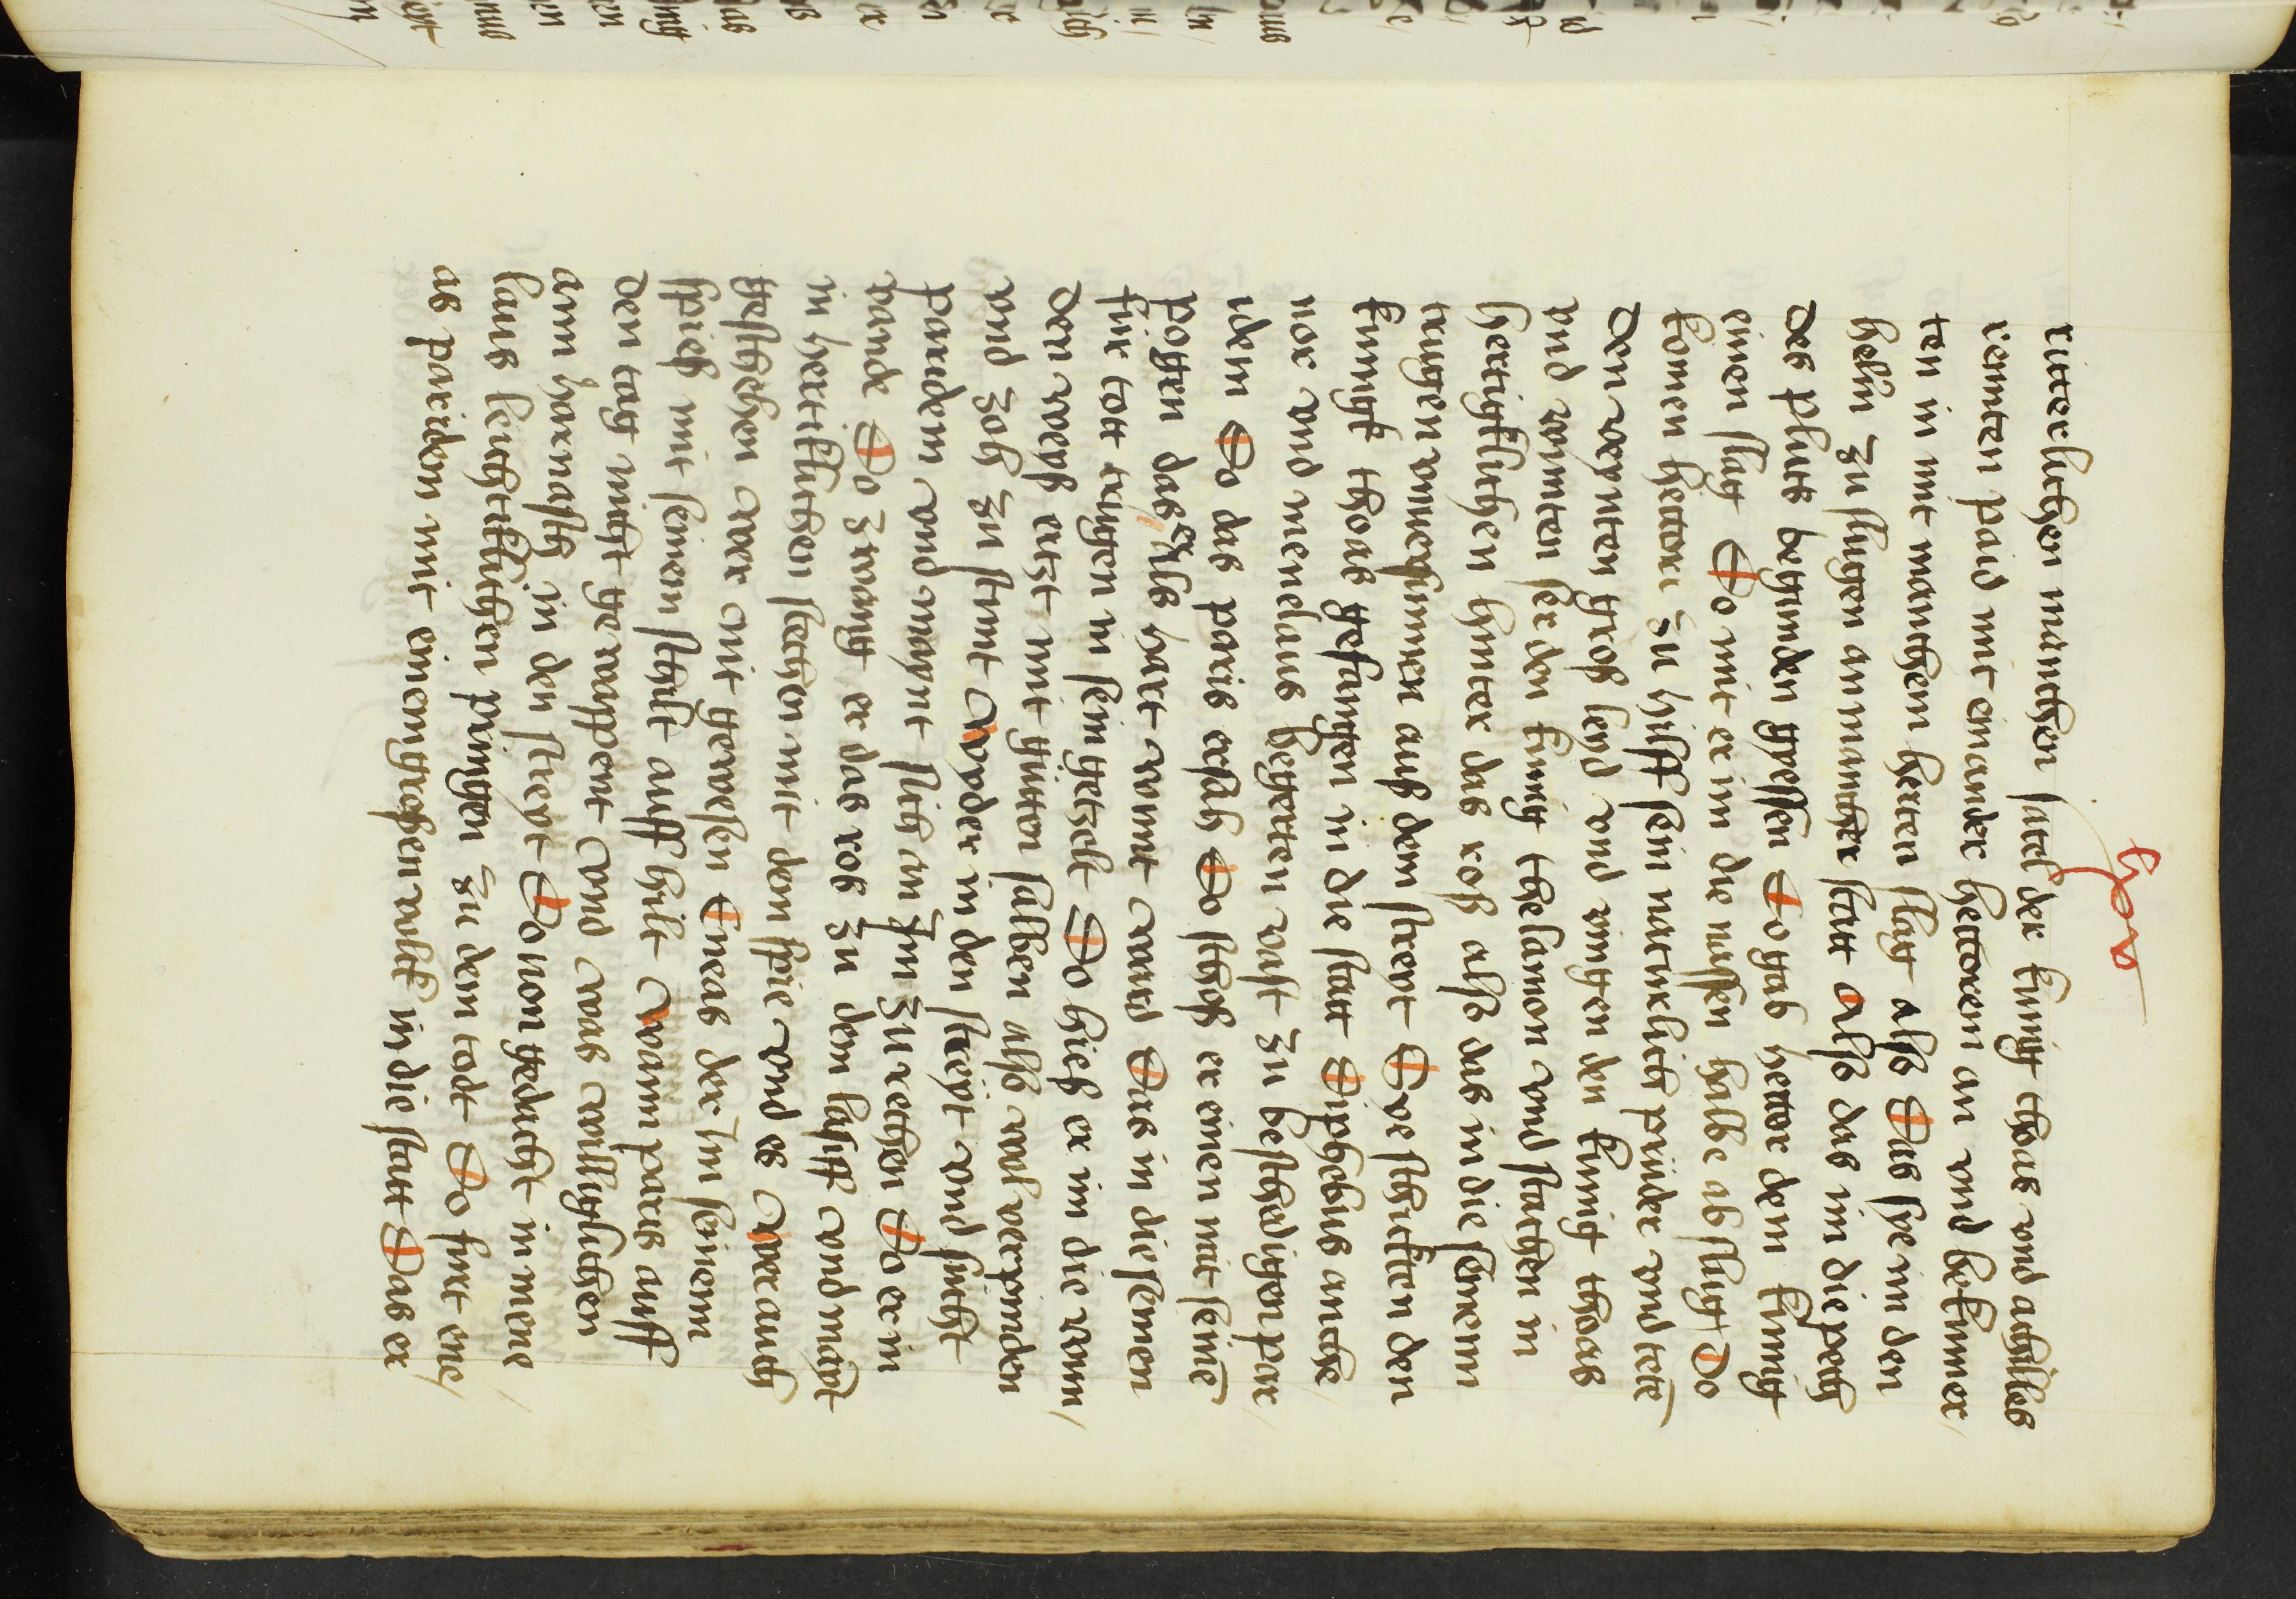 ritterlichen manchen sattel der kunig thoas vnd achilles
rannten paid mit einander hectorem an vnd bekumer
ten in mit manchem herten slag also Das sye im den
helm zu slugen an mancher statt Also das im die pech
des pluts begunden gyessen Do gab hector dem kunig
einen slag Do mit er im die nassen halbe ab slug Do
komen hectori zu hilff sein naturlich pruder vnd tete
den veynten gros leyd vnd vingen den kunig thoas
vnd wunten ser den kunig thelamon vnd slachen in
hertigklichen hynter das roß also das in die seinenn
trugen vnuersunnen auß dem streyt Sye schickten den
kunigk thoas gefangen in die statt Diphebus anthe
nor vnd menelaus begerten vast zu beschedigen par
idem Do das paris ersah Do schoß er einen mit seinē
pogen das er als hart wunt ward Das in die seinen
fur tott trugen in sein getzelt Do hieß er im die wun
den weyß artzt mit guten salben also wol verpinden
vnd zoh zu stunt wyder in den streyt vnd sucht
paridem vnd maynt sich an Im zu rechen Do er in
vande Do zwang er das ros zu dem lauff vnd maint
in hertiklichen stechen mit dem spie vnd es wer auch
geschehen wer nit gewesen Eneas der Im seinenn
spieß mit seinem schilt auff hilt wann paris auff
den tag nicht gewappent vnd was williglichen
ann harnasch in den streyt Do von gedacht in mene
laus leichtiklichen pringen zu dem todt Do furt ene
as pariden mit einem grossen volck in die statt Das er